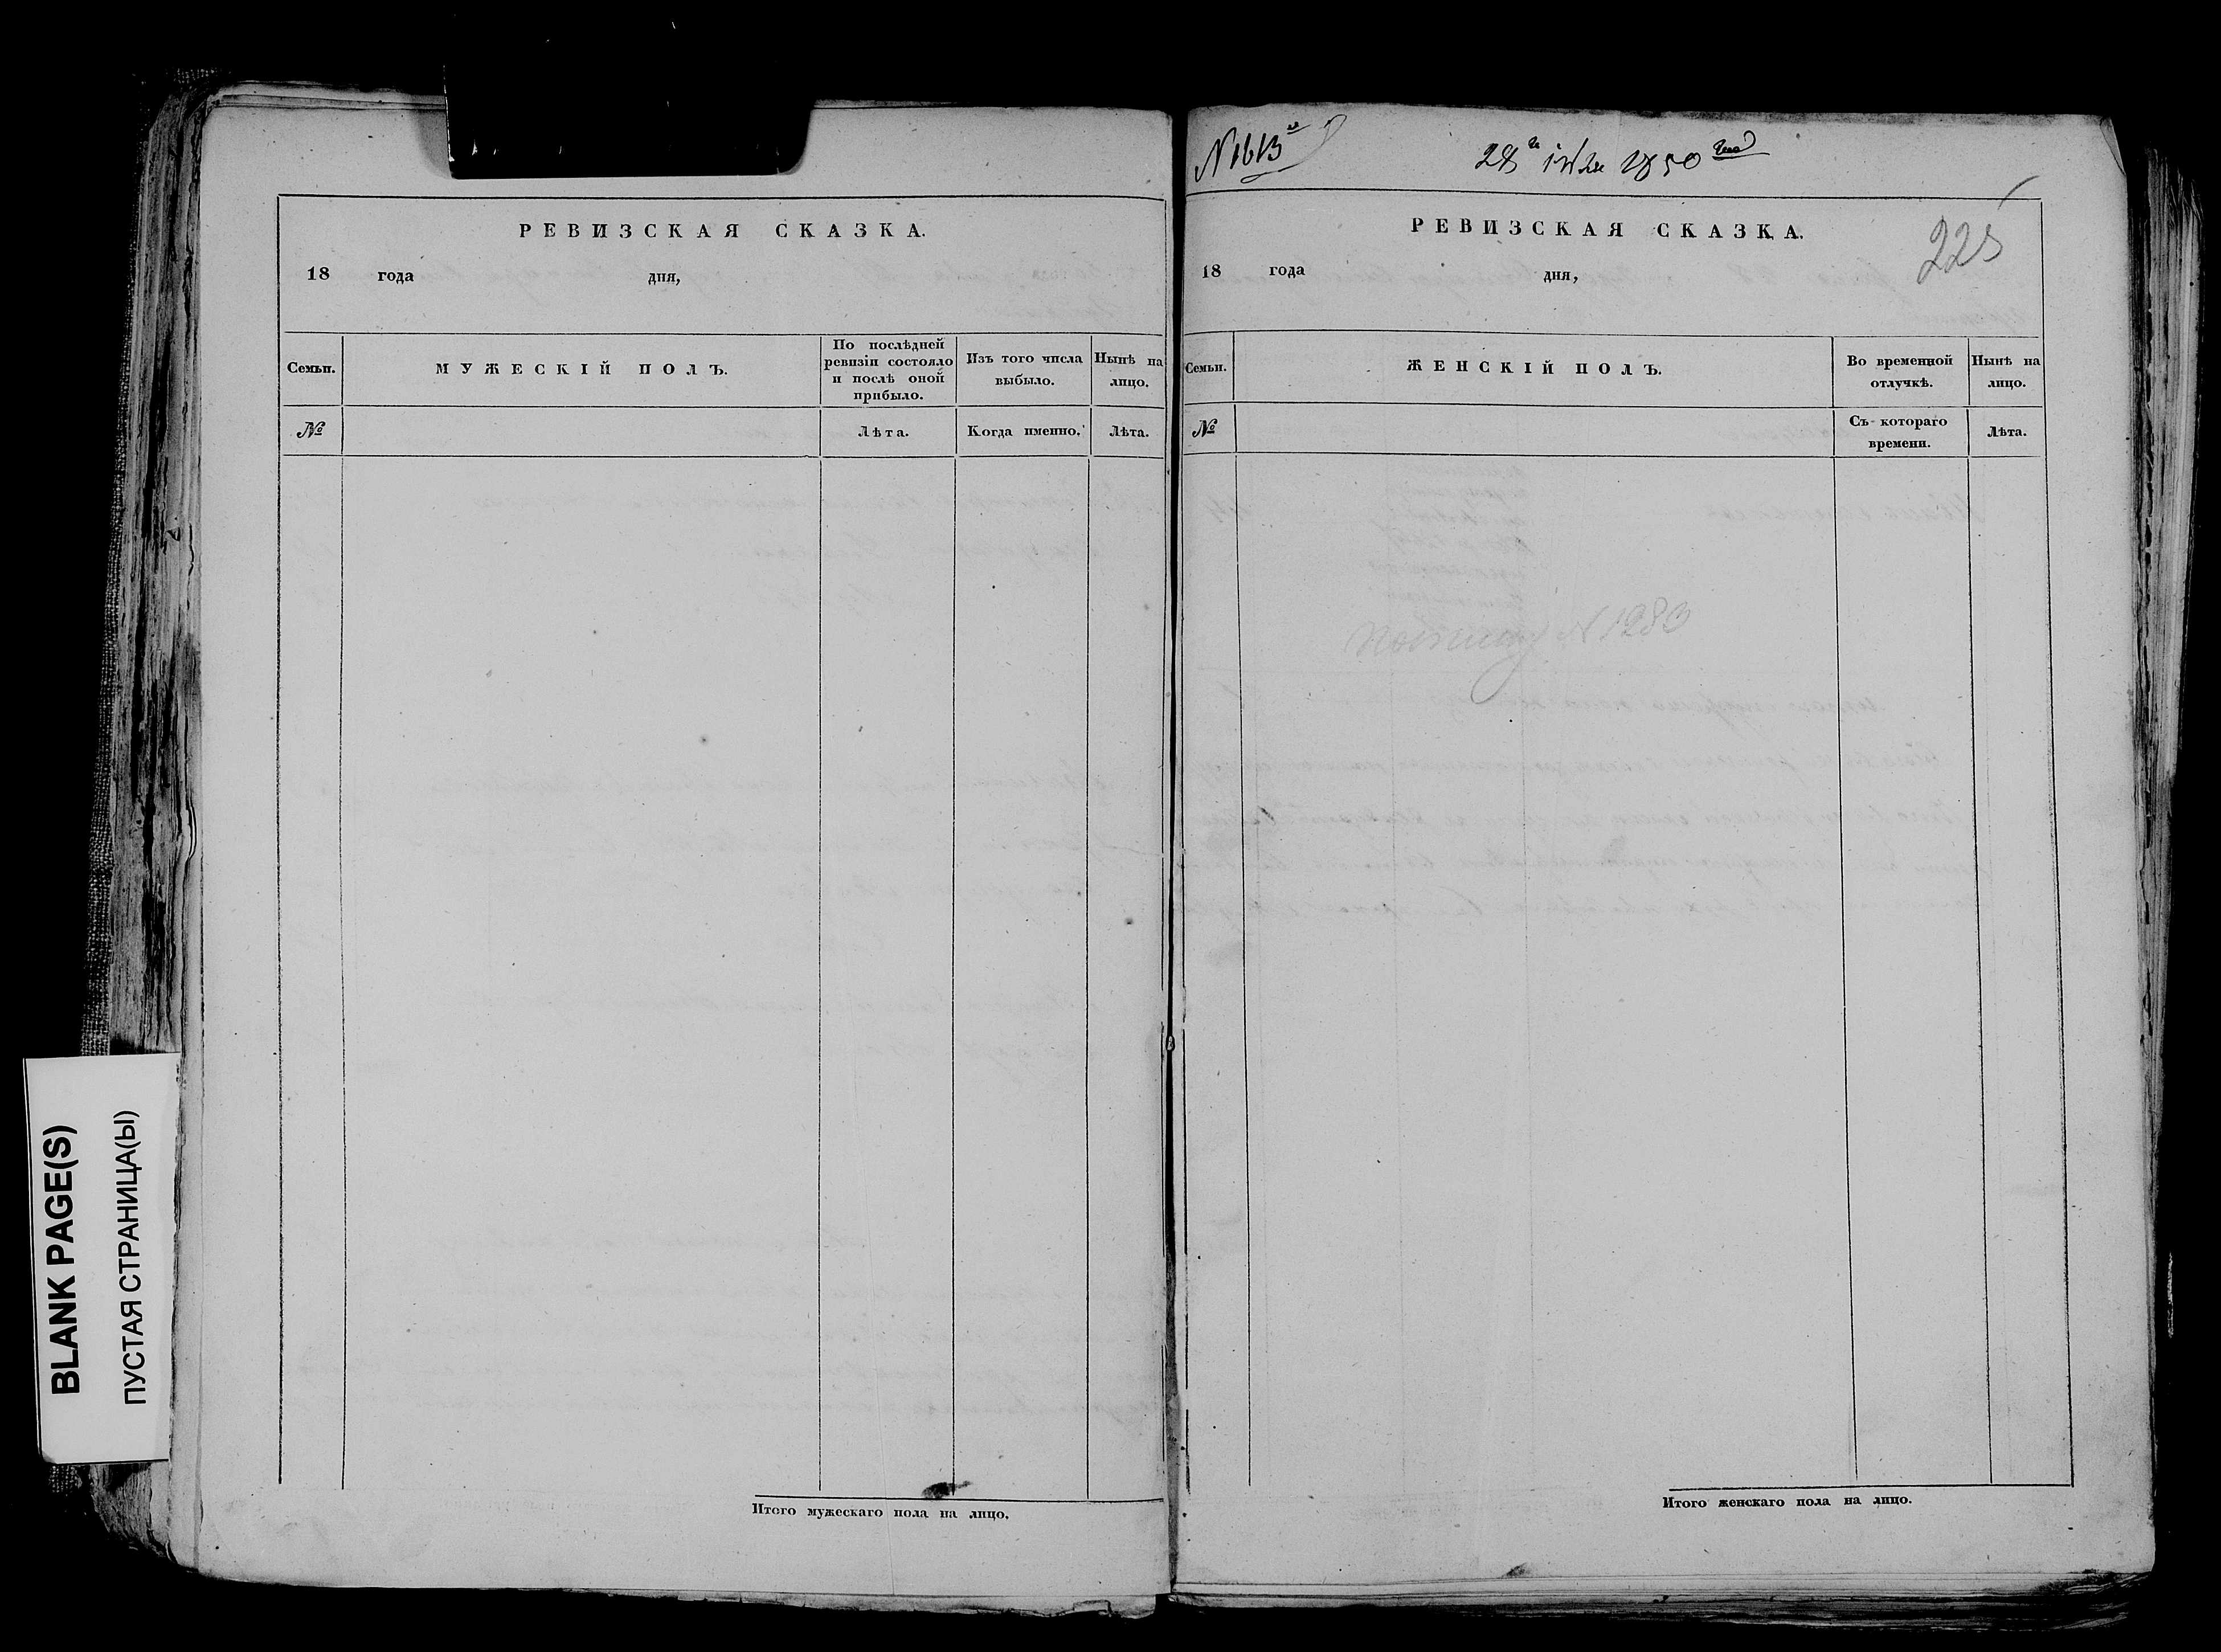 BLANK PAGE(S)
ПУСТАЯ СТРАНИЦА(Ы)
РЕВИЗСКАЯ СКАЗКА.
18 года дня,
Семьи.
МУЖЕСКІЙ ПОЛЪ.
По послѣдней
ревизіи состояло
и послѣ оной
прибыло.
Изъ того числа
выбыло.
Нынѣ на
лицо.
№
Лѣта.
Когда именно.
Лѣта.
Итого мужескаго пола на лицо.
28 1850
РЕВИЗСКАЯ СКАЗКА.
225
18 года дня,
Семьи.
ЖЕНСКІЙ ПОЛЪ.
Во временной
отлучкѣ.
Нынѣ на
лицо.
№
Съ котораго
времени.
Лѣта.
N 1283
Итого женскаго пола на лицо.